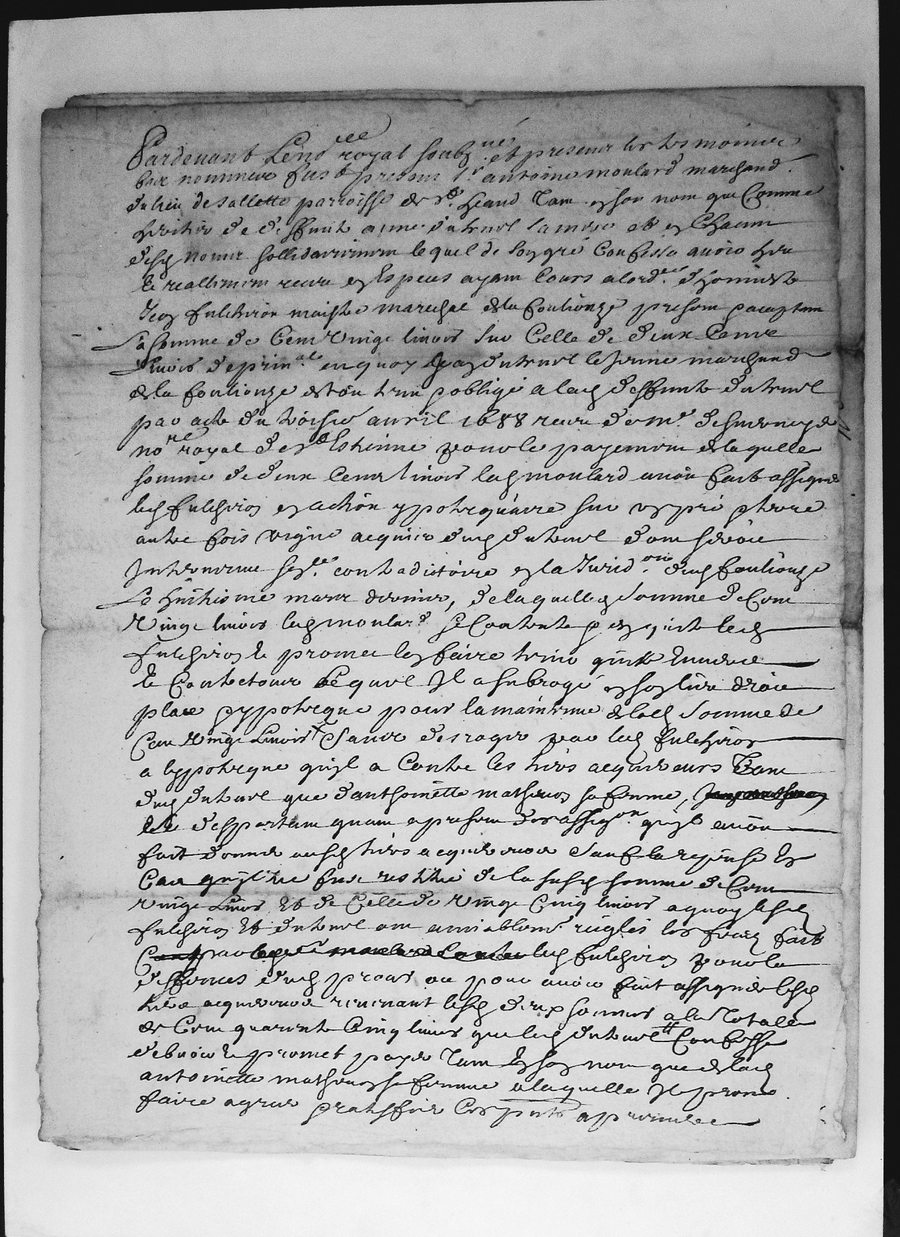 Pardevant le no.re royal soubz.né et presens les tesmoins
bas nommes fust present s.r antoine moulard marchand
du lieu de Sallette parroisse de s.t heand tam en son nom que Comme
heritier de deffunte anne dutreul sa mere et en Chacun
desd noms sollidairement lequel de son gré Confesse avoir heu
et reallement receu en Especes ayam Cours a lord.ce d'honneste
Fulchiron maistre marechal de la foulionze presem acceptam
la somme de Cem vingt livres sur Celle de deux Cems
livres de prin.al en quoy dutreul le jeune marchand
de la foulionze estoit obligé a lad deffunte dutreul
par acte du troisie avril 1688 receu de m.e
no.re royal de s.t Estienne pour le payemem de laquelle
somme de deux Cems livres led moulard avoit fait assigner
led fulchiron en action ypotecquaire sur un pré terre
autre fois vigne acquise dud dutreul dom seroit
Intervenue sen.ce contradictoire en la Jurid.on dud foulionze
Le huitieme mars dernier, de laquelle somme de Cem
vingt livres led moulard se Contente et en quitte led
fulchiron et promet len faire tenir quitte Envers
et Contre tous Lequel Il a subrogé en son lieu droit
place et ypoteque pour la maintenue de lad somme de
Cem vingt Livres Sauve par led fulchiron
a lypoteque quil a Contre les tiers acquereurs Tam
dud dutreul que dantoinette matheron sa femme,
fait donner ausd tiers acquereurs Sauf la reprise En
Cas quil fut restitué de la susd somme de Cem
vingt Livres Et de Celle de vingt Cinq livres a quoy lesd
fulchiron Et dutreul om amiablem reigles les frais fait
par led fulchiron pour la
deffences dud proces ou pour avoir fait assigner lesd
tiers acquereurs revenant lesd deux sommes a la Totale
de Cem quarente Cinq livres que led dutreul Confesse
debvoir Et promet payer Tam En son nom que de lad
antoinette matheron sa femme a laquelle Il promet
faire agreer Ces pntes